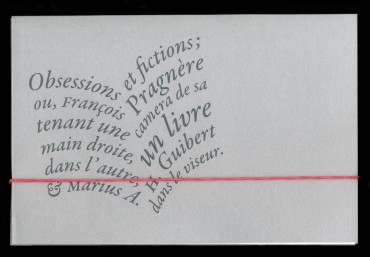 Obsessions et fictions;
ou, François Pragnère
tenant une camera de sa
main droite, un livre
dans l'autre, H. Guibert
& Marius A. dans le viseur.